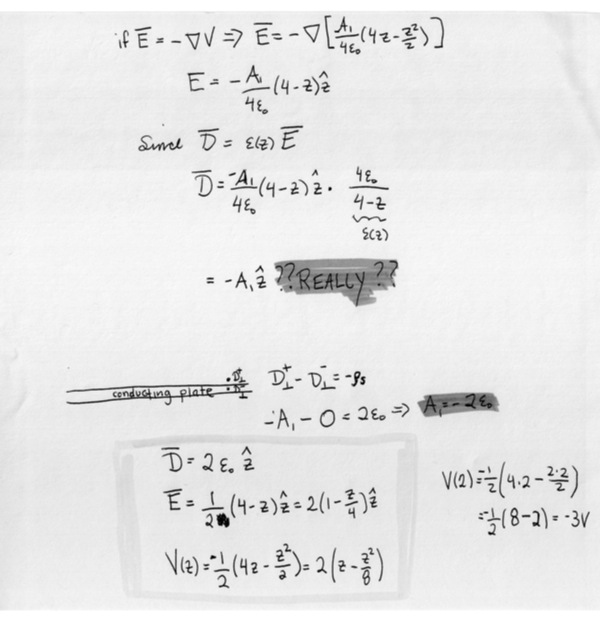 if E̅ = -∇V => E̅ = -∇[A₁/4ε₀(4z-z²/2)]
E = -A₁/4ε₀(4-z)ẑ
Since D̅ = ε(z) E̅
D̅ = -A₁/4ε₀(4-z)ẑ · 4ε₀/4-z
ε(z)
= -A₁ẑ ??REALLY??
conducting plate · D⊥⁺ · D⊥⁻ D⊥⁺ - D⊥⁻ = -ρs
-A₁ - 0 = 2ε₀ => A₁ = -2ε₀
D̅ = 2ε₀ẑ
E̅ = 1/2(4-z)ẑ = 2(1-z/4)ẑ
V(z) = -1/2(4z-z²/2) = 2(z-z²/8)
V(2) = -1/2(4·2-2·2/2)
= -1/2(8-2) = -3V